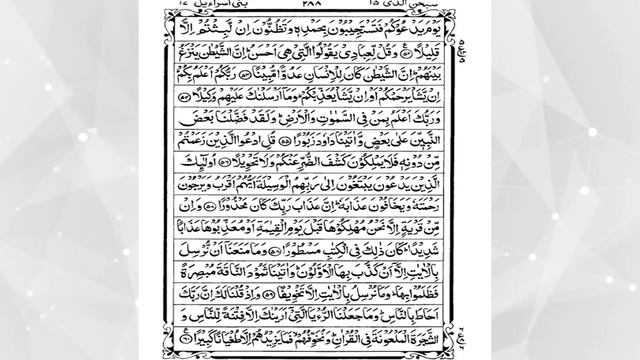 سبحٰن الذی ۱۵ ۲۸۸ بنی اسراءیل ۱۷
يَوْمَ يَدْعُوْكُمْ فَتَسْتَجِيْبُوْنَ بِحَمْدِهٖ وَتَظُنُّوْنَ اِنْ لَّبِثْتُمْ اِلَّا
قَلِيْلًا ﴿۵۲﴾ وَقُلْ لِّعِبَادِيْ يَقُوْلُوا الَّتِيْ هِيَ اَحْسَنُ ؕ اِنَّ الشَّيْطٰنَ يَنْزَغُ
بَيْنَهُمْ ؕ اِنَّ الشَّيْطٰنَ كَانَ لِلْاِنْسَانِ عَدُوًّا مُّبِيْنًا ﴿۵۳﴾ رَبُّكُمْ اَعْلَمُ بِكُمْ ؕ
اِنْ يَّشَاْ يَرْحَمْكُمْ اَوْ اِنْ يَّشَاْ يُعَذِّبْكُمْ ؕ وَمَاۤ اَرْسَلْنٰكَ عَلَيْهِمْ وَكِيْلًا ﴿۵۴﴾
وَرَبُّكَ اَعْلَمُ بِمَنْ فِي السَّمٰوٰتِ وَالْاَرْضِ ؕ وَلَقَدْ فَضَّلْنَا بَعْضَ
النَّبِيّٖنَ عَلٰى بَعْضٍ وَّاٰتَيْنَا دَاوٗدَ زَبُوْرًا ﴿۵۵﴾ قُلِ ادْعُوا الَّذِيْنَ زَعَمْتُمْ
مِّنْ دُوْنِهٖ فَلَا يَمْلِكُوْنَ كَشْفَ الضُّرِّ عَنْكُمْ وَلَا تَحْوِيْلًا ﴿۵۶﴾ اُولٰٓئِكَ
الَّذِيْنَ يَدْعُوْنَ يَبْتَغُوْنَ اِلٰى رَبِّهِمُ الْوَسِيْلَةَ اَيُّهُمْ اَقْرَبُ وَيَرْجُوْنَ
رَحْمَتَهٗ وَيَخَافُوْنَ عَذَابَهٗ ؕ اِنَّ عَذَابَ رَبِّكَ كَانَ مَحْذُوْرًا ﴿۵۷﴾ وَاِنْ
مِّنْ قَرْيَةٍ اِلَّا نَحْنُ مُهْلِكُوْهَا قَبْلَ يَوْمِ الْقِيٰمَةِ اَوْ مُعَذِّبُوْهَا عَذَابًا
شَدِيْدًا ؕ كَانَ ذٰلِكَ فِي الْكِتٰبِ مَسْطُوْرًا ﴿۵۸﴾ وَمَا مَنَعَنَاۤ اَنْ نُّرْسِلَ
بِالْاٰيٰتِ اِلَّاۤ اَنْ كَذَّبَ بِهَا الْاَوَّلُوْنَ ؕ وَاٰتَيْنَا ثَمُوْدَ النَّاقَةَ مُبْصِرَةً
فَظَلَمُوْا بِهَا ؕ وَمَا نُرْسِلُ بِالْاٰيٰتِ اِلَّا تَخْوِيْفًا ﴿۵۹﴾ وَاِذْ قُلْنَا لَكَ اِنَّ رَبَّكَ
اَحَاطَ بِالنَّاسِ ؕ وَمَا جَعَلْنَا الرُّءْيَا الَّتِيْۤ اَرَيْنٰكَ اِلَّا فِتْنَةً لِّلنَّاسِ وَ
الشَّجَرَةَ الْمَلْعُوْنَةَ فِي الْقُرْاٰنِ ؕ وَنُخَوِّفُهُمْ ۙ فَمَا يَزِيْدُهُمْ اِلَّا طُغْيَانًا كَبِيْرًا ﴿۶۰﴾